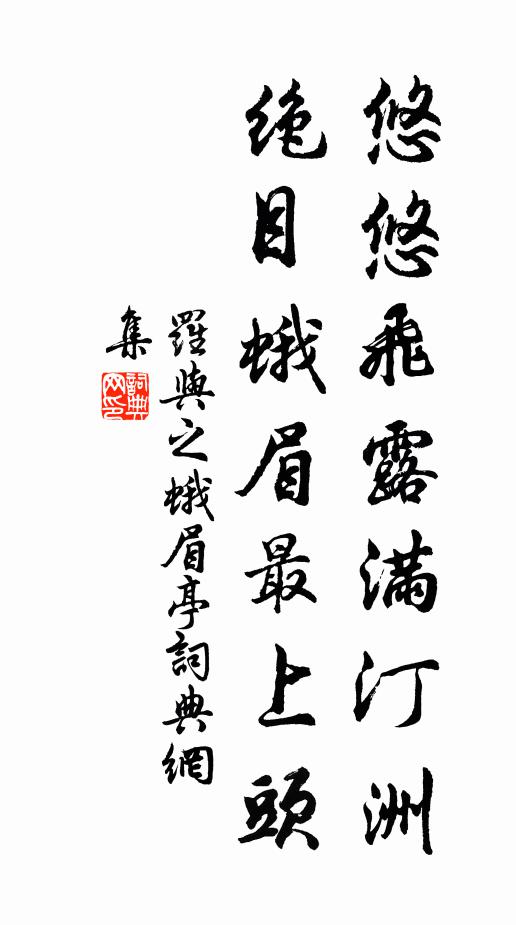 悠悠飛露滿汀洲
絶目蛾眉最上頭
羅與之蛾眉亭詞典網
集
詞典网印